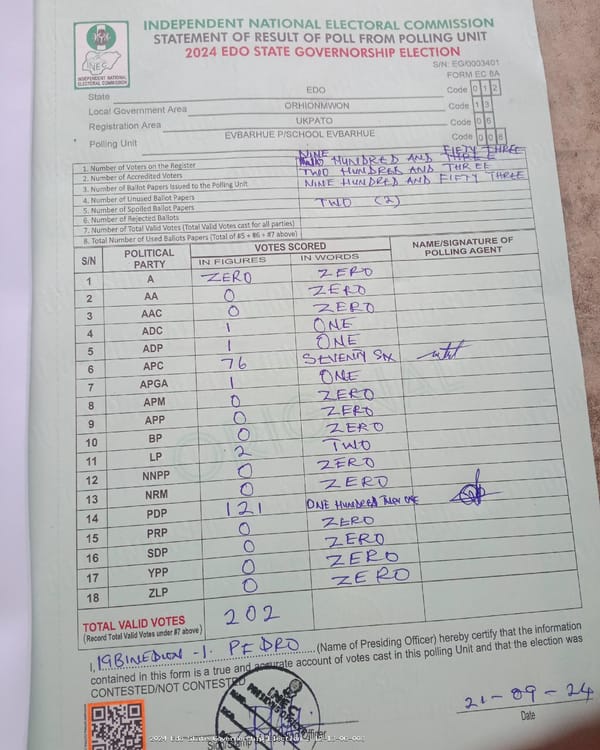 INDEPENDENT NATIONAL ELECTORAL COMMISSION
STATEMENT OF RESULT OF POLL FROM POLLING UNIT
2024 EDO STATE GOVERNORSHIP ELECTION
INEC
INDEPENDENT NATIONAL ELECTORAL COMMISSION
S/N: EG/0003401
FORM EC 8A
State EDO Code 0 1 2
Local Government Area ORHIONMWON Code 1 3
Registration Area UKPATO Code 0 6
Polling Unit EVBARHUE P/SCHOOL EVBARHUE Code 0 0 8
1. Number of Voters on the Register NINE HUNDRED AND FIFTY THREE
2. Number of Accredited Voters TWO HUNDRED AND THREE
3. Number of Ballot Papers Issued to the Polling Unit NINE HUNDRED AND FIFTY THREE
4. Number of Unused Ballot Papers
5. Number of Spoiled Ballot Papers TWO (2)
6. Number of Rejected Ballots
7. Number of Total Valid Votes (Total Valid Votes cast for all parties)
8. Total Number of Used Ballots Papers (Total of #5 + #6 + #7 above)
S/N POLITICAL PARTY VOTES SCORED NAME/SIGNATURE OF POLLING AGENT
IN FIGURES IN WORDS
1 A ZERO ZERO
2 AA 0 ZERO
3 AAC 0 ZERO
4 ADC 1 ONE
5 ADP 1 ONE
6 APC 76 SEVENTY SIX
7 APGA 1 ONE
8 APM 0 ZERO
9 APP 0 ZERO
10 BP 0 ZERO
11 LP 2 TWO
12 NNPP 0 ZERO
13 NRM 0 ZERO
14 PDP 121 ONE HUNDRED
15 PRP 0 ZERO
16 SDP 0 ZERO
17 YPP 0 ZERO
18 ZLP 0 ZERO
ORIGINAL
TOTAL VALID VOTES 202
(Record Total Valid Votes under #7 above)
I, IGBINEDION - I. PEDRO (Name of Presiding Officer) hereby certify that the information
contained in this form is a true and accurate account of votes cast in this polling Unit and that the election was
CONTESTED/NOT CONTESTED
21-09-24
Date
Officer
2024 Edo State Governorship Election